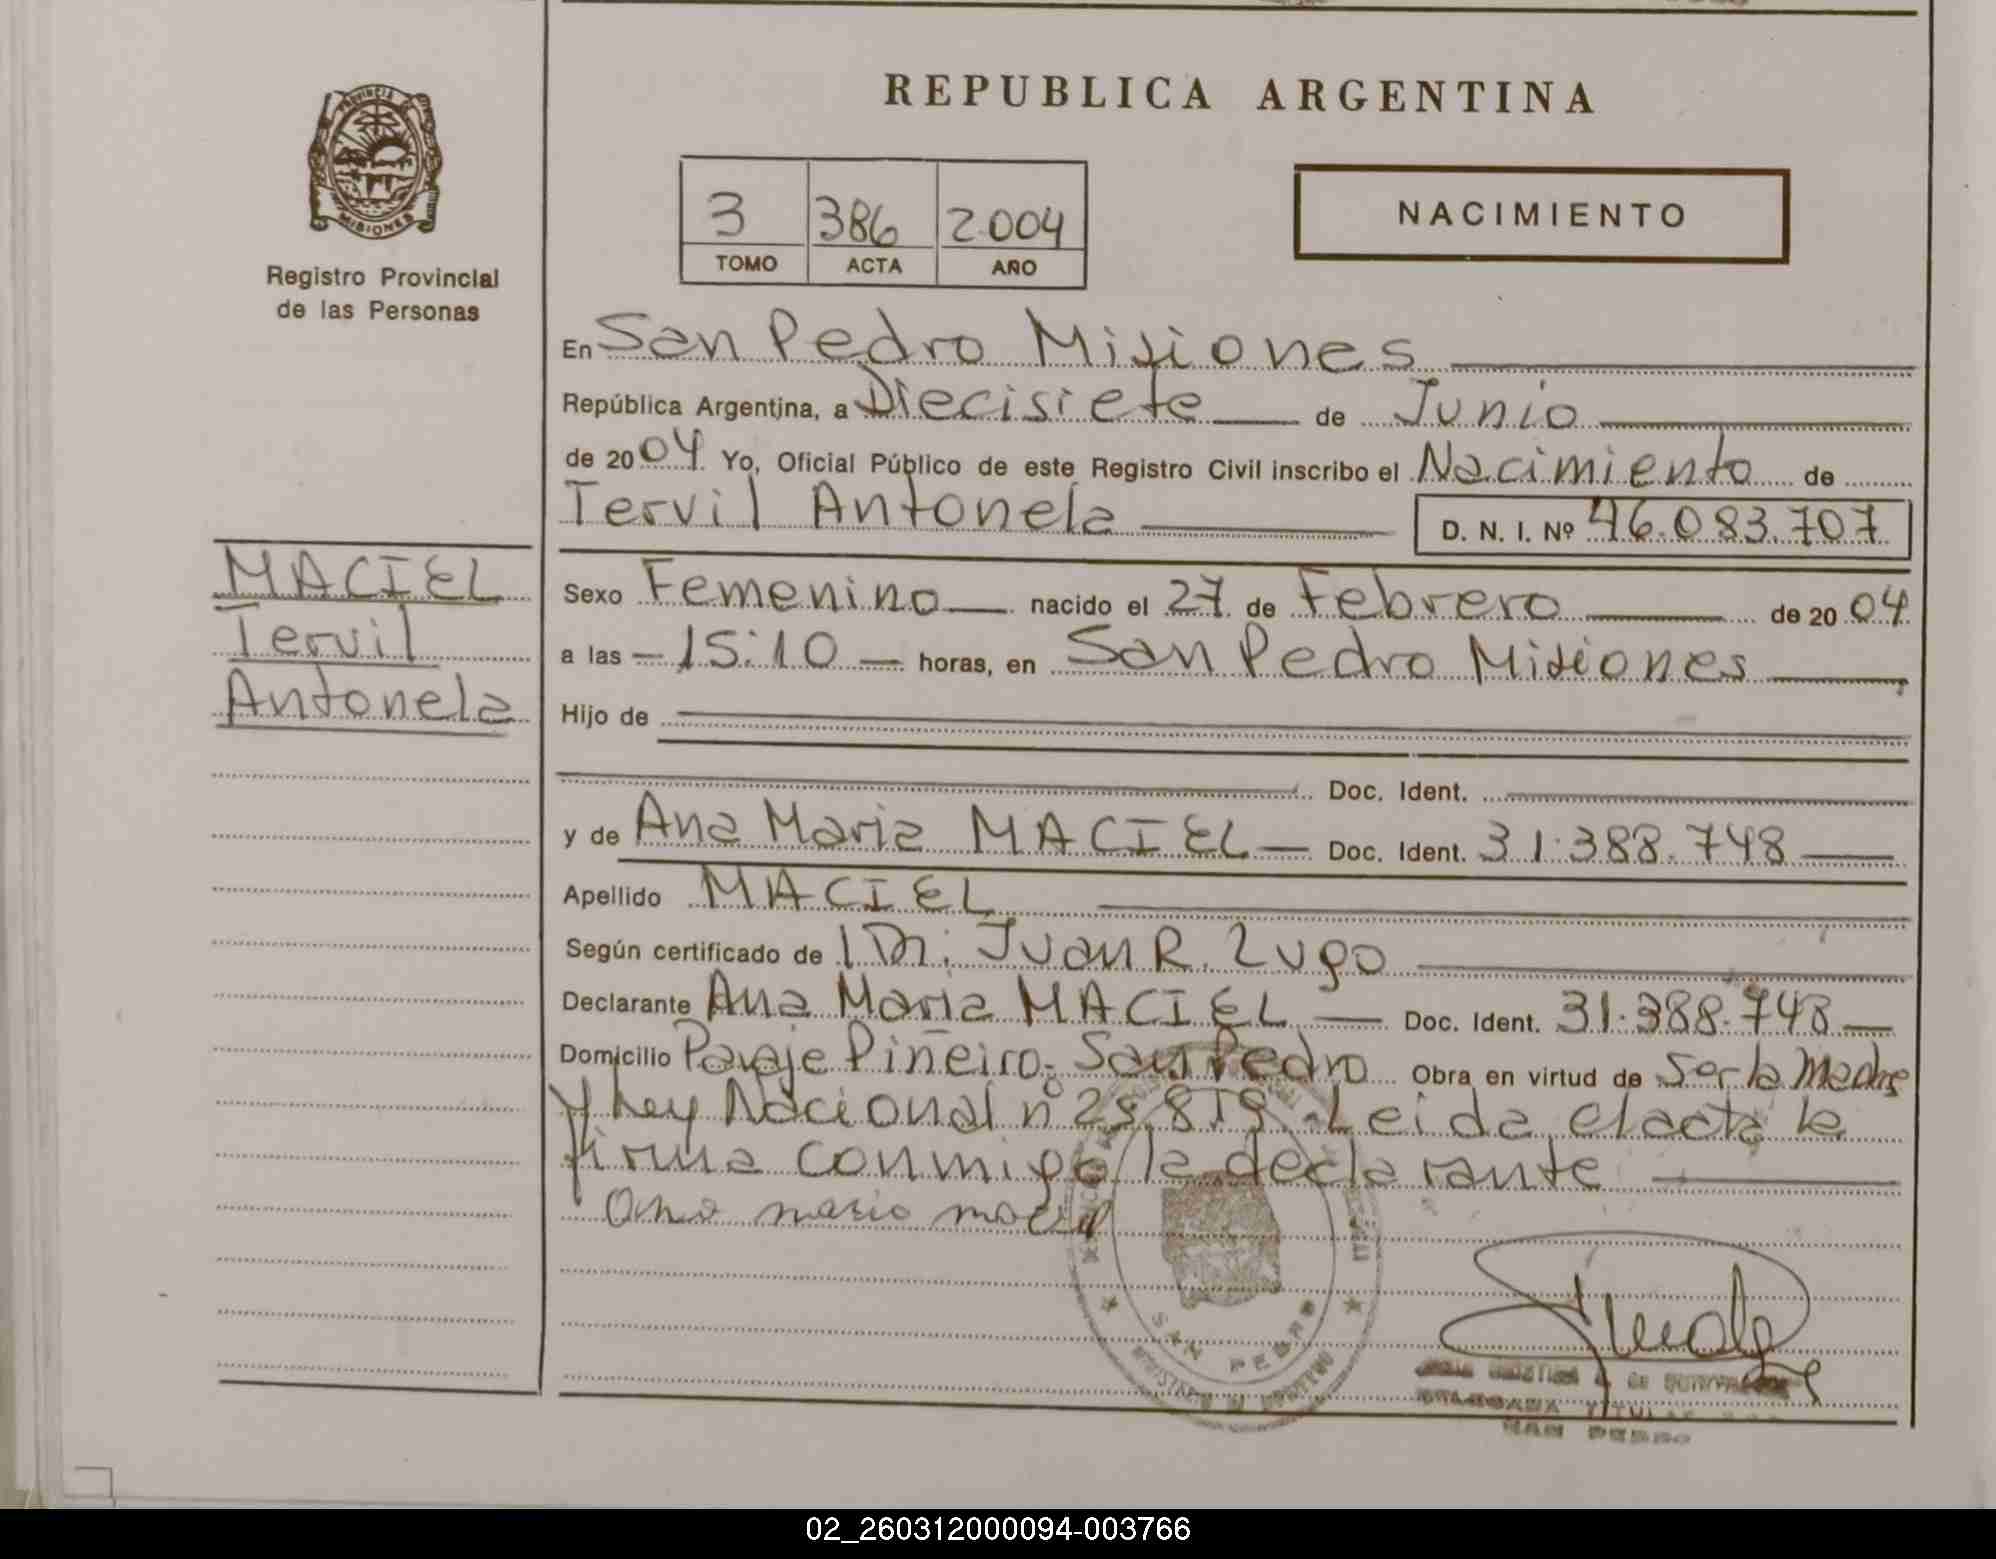 REPUBLICA ARGENTINA
PROVINCIA DE
MISIONES
Registro Provincial
de las Personas
3 386 2.004
TOMO ACTA AÑO
NACIMIENTO
En San Pedro Misiones
República Argentina, a Diecisiete de Junio
de 2004 Yo, Oficial Público de este Registro Civil inscribo el Nacimiento de
Tervil Antonela D. N. I. Nº 46.083.707
MACIEL
Tervil
Antonela
Sexo Femenino nacido el 27 de Febrero de 2004
a las 15:10 horas, en San Pedro Misiones
Hijo de
Doc. Ident.
y de Ana Maria MACIEL Doc. Ident. 31.388.748
Apellido MACIEL
Según certificado de Dr. Juan R. Lugo
Declarante Ana Maria MACIEL Doc. Ident. 31.388.748
Domicilio Paraje Piñeiro. San Pedro Obra en virtud de Ser la Madre
y Ley Nacional nº 25.819. Leida el acta la
firma conmigo la declarante
Ana maria maciel
SAN PEDRO
SAN PEDRO
02_260312000094-003766